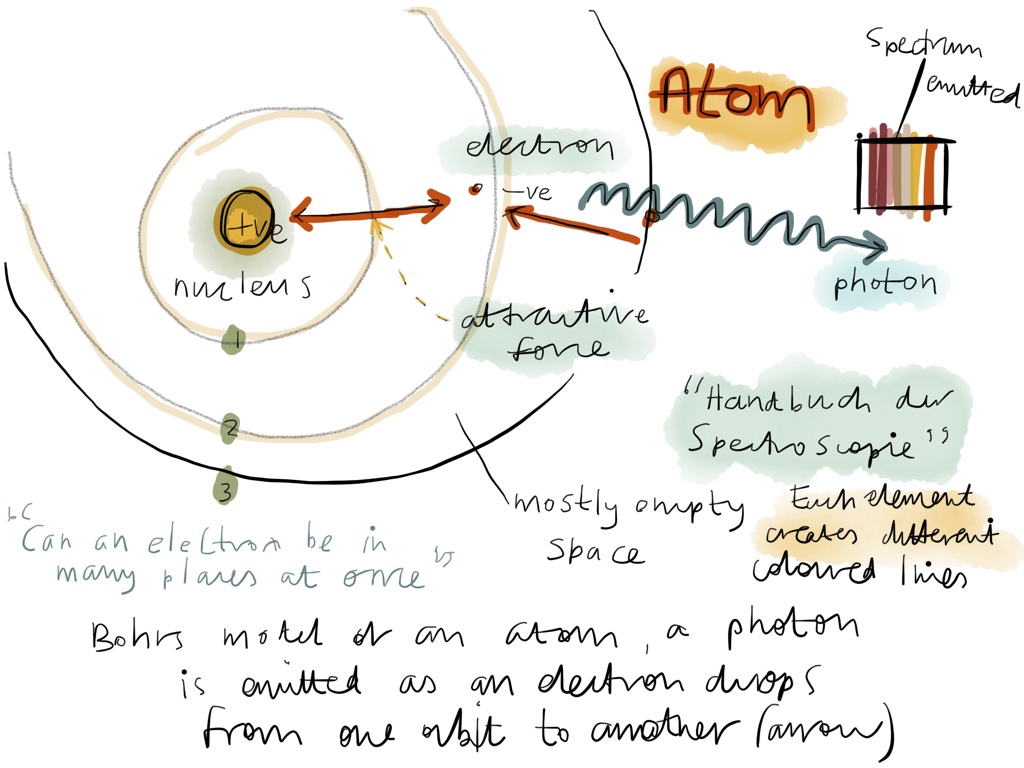 Spectrum
emitted
Atom
electron
-ve
+ve
nucleus
photon
attractive
force
1
2
3
"Handbuch der
Spectroscopie"
mostly empty
space
Each element
creates different
coloured lines
"Can an electron be in
many places at once"
Bohrs model of an atom, a photon
is emitted as an electron drops
from one orbit to another (arrow)